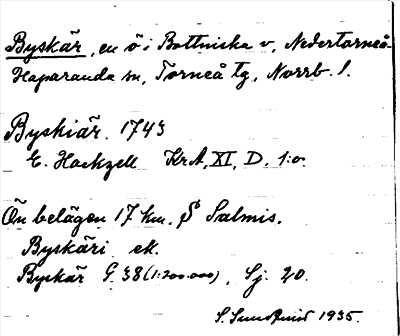 Byskär, en ö i Bottniska v, Nedertorneå-
Haparanda sn, Torneå tg, Norrb. l.
Byskiär. 1743
E. Hackzell KrA, XI, D. 1:o.
Ön belägen 17 km. S Salmis.
Byskäri ek.
Byskär G. 38 (1:200.000), Sj. 20.
S. Sundqvist 1935.